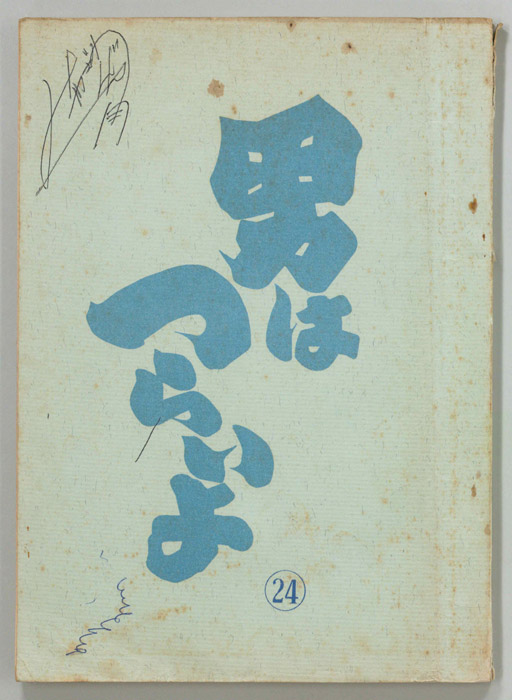 男は
つらいよ
24